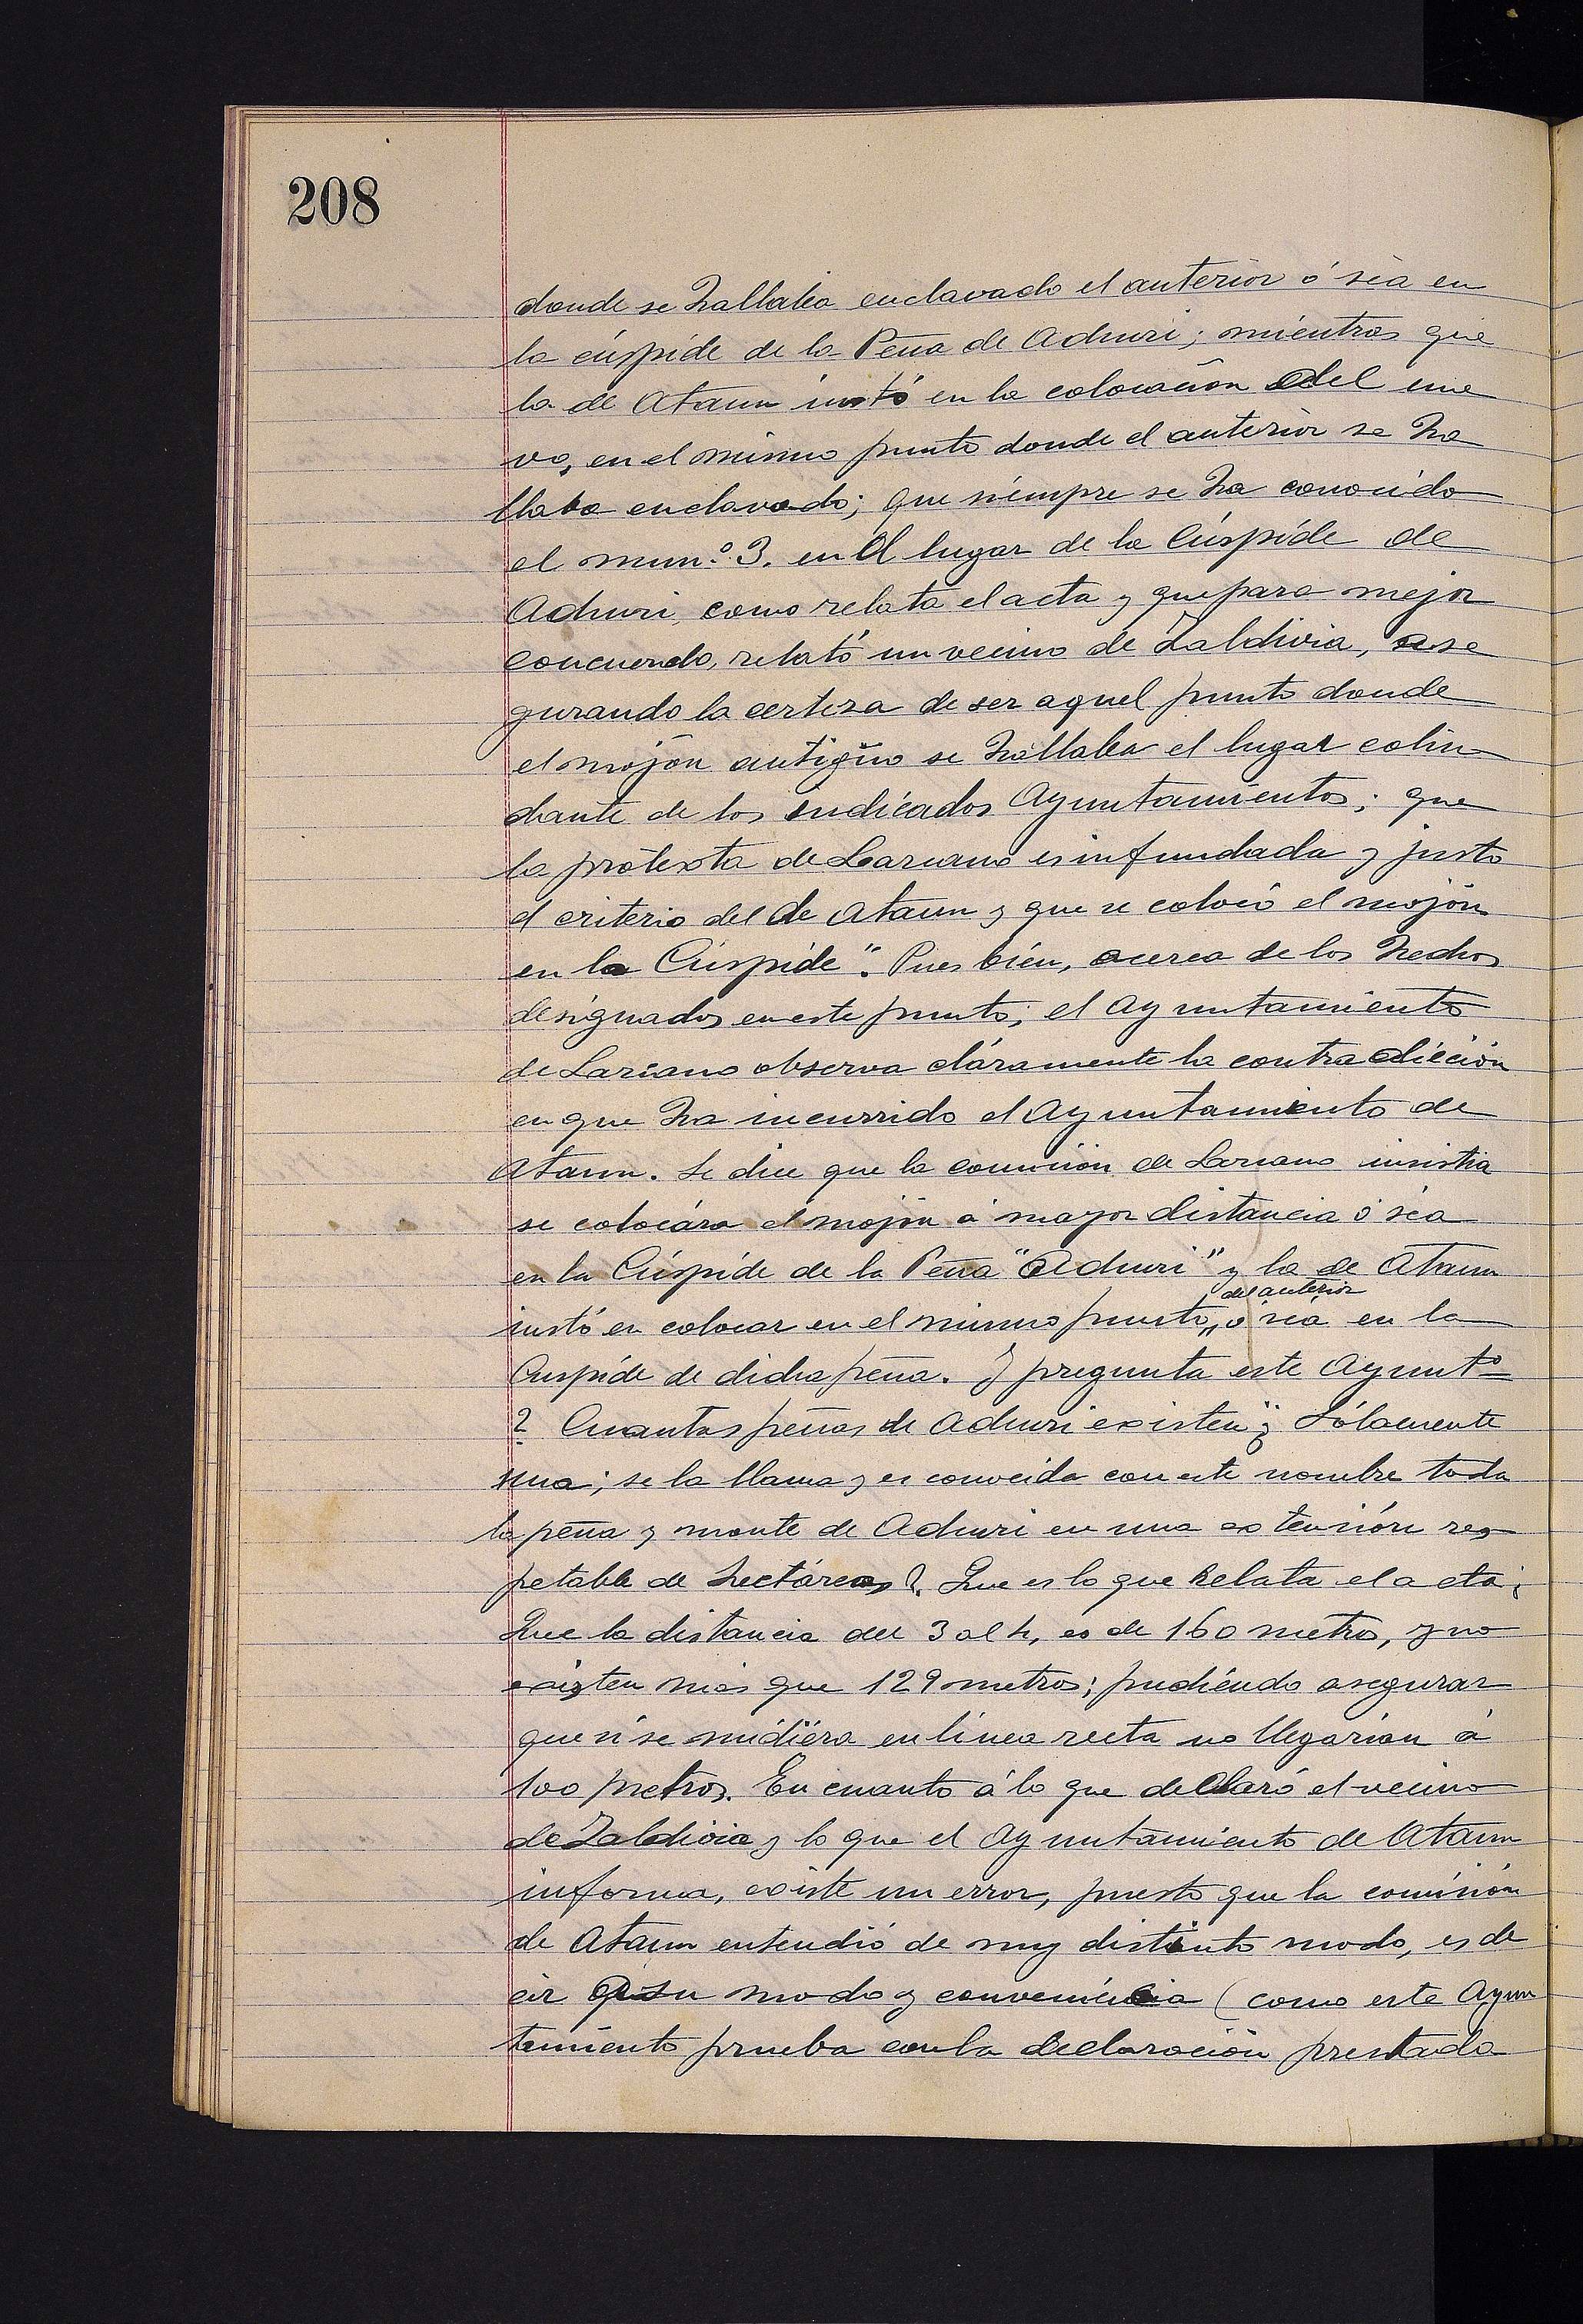 208
donde se hallaba enclavado el anterior ó séa en
la cúspide de la Peña de Aduuri; mientras que
la de Ataun instó en la colocación del nue
vo, en el mismo punto donde el anterior se ha
llaba enclavado; que siempre se ha conocido
el num.º 3. en el lugar de la Cúspide de
Aduuri, como relata el acta y que para mejor
concuerdo, relató un vecino de Zaldivia, ase
gurando la certeza de ser aquel punto donde
el mojón antigüo se hallaba el lugar colin
dante de los indicados Ayuntamientos; que
la protexta de Lazcano es infundada y justo
el criterio del de Ataun y que se colocó el mojón
en la Cúspide". Pues bién, acerca de los hechos
designados en este punto, el Ayuntamiento
de Lazcano observa cláramente la contradicción
en que ha incurrido el Ayuntamiento de
Ataun. Se dice que la comisión de Lazcano insistia
se colocára el mojón á mayor distancia ó séa
en la Cúspide de la Peña "Aduuri" y la de Ataun
del anterior
instó en colocar en el mismo punto,, ó séa en la
Cuspide de dicha peña. Y pregunta este Ayuntº
? Cuantas peñas de Aduuri existen"¿ Sólamente
una; se la llama y es conocida con este nombre toda
la peña y monte de Aduuri en una extensión res
petable de hectáreas?. Que es lo que Relata el acta;
Que la distancia del 3 al 4, es de 160 metros, y no
existen más que 129 metros; pudiéndo asegurar
que si se midiéra en línea recta no llegarían á
100 metros. En cuanto á lo que declaró el vecino
de Zaldivia y lo que el Ayuntamiento de Ataun
informa, existe un error, puesto que la comisión
de Ataun entendió de muy distinto modo, es de
cir a su modo y conveniéncia (como este Ayun
tamiento prueba con la declaración prestada